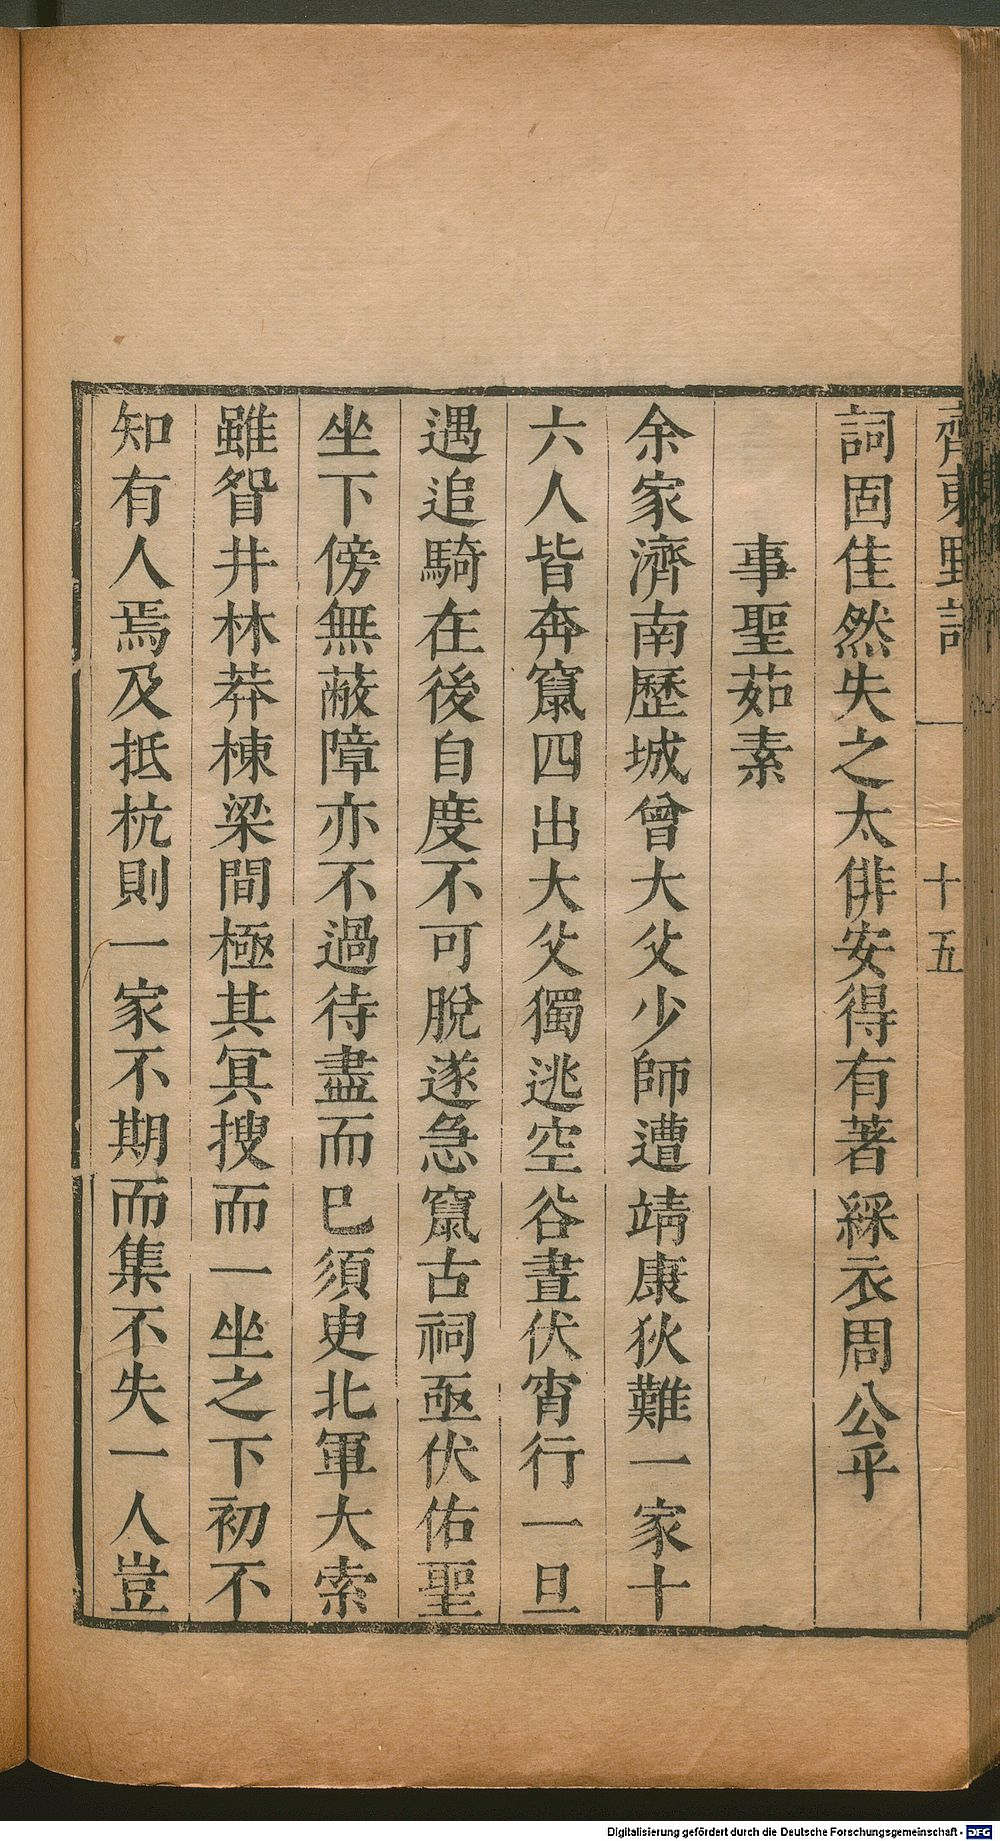 齊東野語 十五
詞固佳然失之太俳安得有著綵衣周公乎
事聖茹素
余家濟南歷城曾大父少師遭靖康狄難一家十
六人皆奔竄四出大父獨逃空谷晝伏宵行一旦
遇追騎在後自度不可脫遂急竄古祠亟伏佑聖
坐下傍無蔽障亦不過待盡而已須史北軍大索
雖眢井林莽棟梁間極其冥搜而一坐之下初不
知有人焉及抵杭則一家不期而集不失一人豈
Digitalisierung gefördert durch die Deutsche Forschungsgemeinschaft - DFG